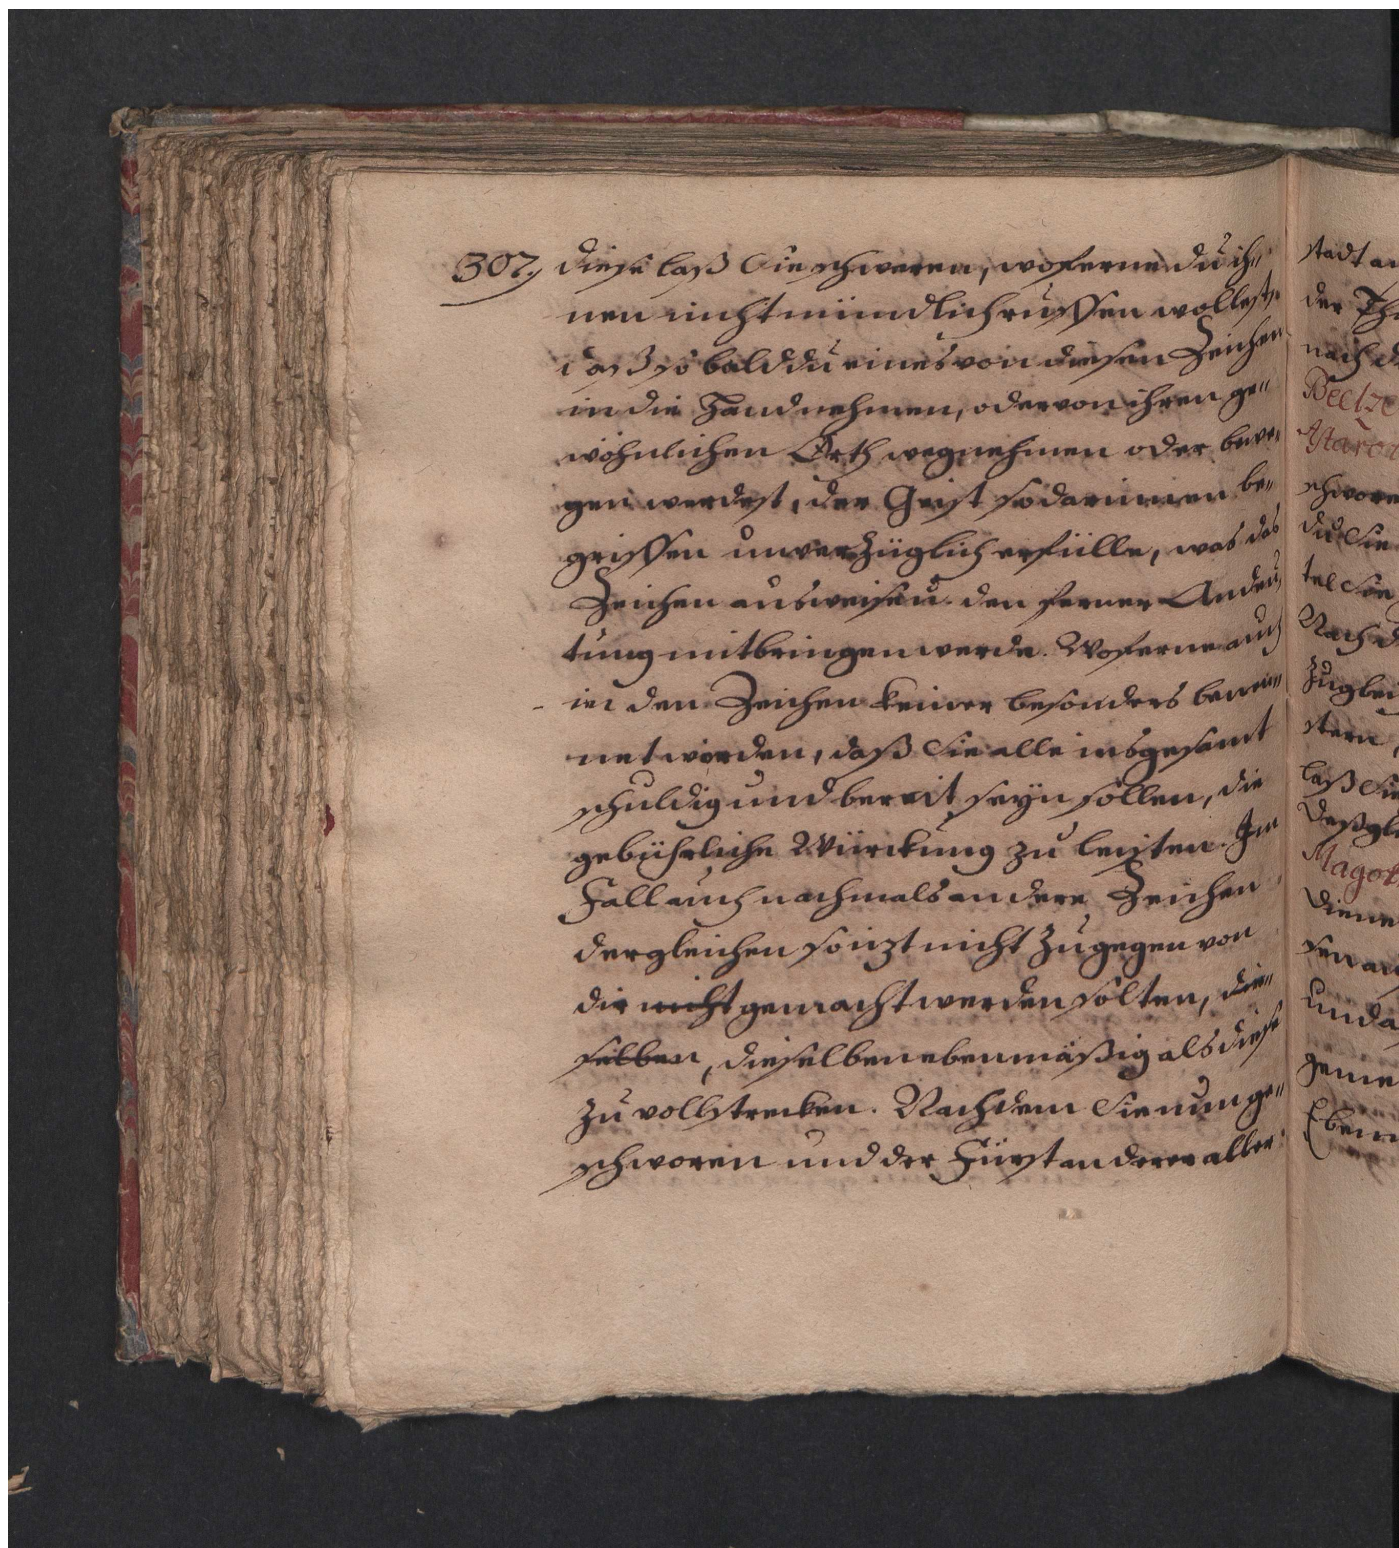 307. diese laß Sie schweren, woferne du ih„
nen nicht mündlich ruffen wollest,
daß so bald du eines von diesen Zeichen
in die Hand nehmen, oder von ihren ge„
wöhnlichen Orth wegnehmen oder bewe„
gen werdest, der Geist so darinnen be„
griffen unverzüglich erfülle, was das
Zeichen ausweisen den ferner Andeu„
tung mitbringen werde. Woferne auch
in den Zeichen keiner besonders benen„
net worden, daß Sie alle insgesamt
schuldig und bereit seyn sollen, die
gebührliche Würckung zu leisten. Im
Fall auch nachmals andere Zeichen
dergleichen sonzt nicht zugegen von
dir nicht gemacht werden solten, die„
selben, dieselben ebenmäßig als diese
zu vollstrecken. Nachdem Sie nun ge„
schworen und der Fürst an derer aller
stadt
der
nach
Beelze
Astaro
schwore
du Sie
tel
Nach
Zuglei
stern
laß Sie
deßgl
Magot
diene
und
Eben